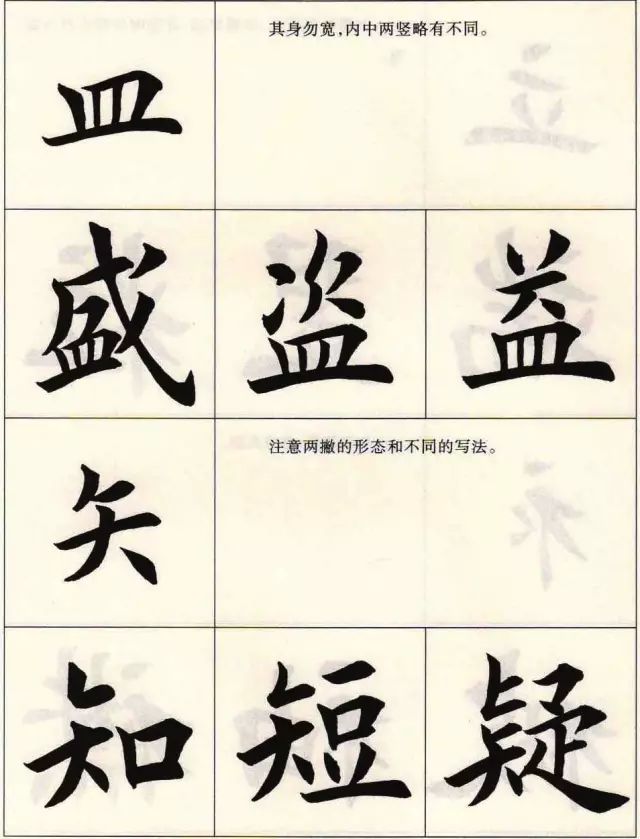 皿
其身勿宽,内中两竖略有不同。
盛 盗 益
矢
注意两撇的形态和不同的写法。
知 短 疑